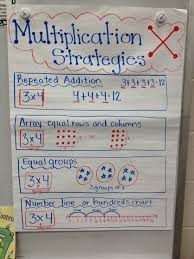 Multiplication
Strategies
Repeated Addition
3x4
3+3+3+3=12
4+4+4=12
Array equal rows and columns
3x4
Equal groups
3x4
3 groups of 4
Number line, or hundreds chart
3x4